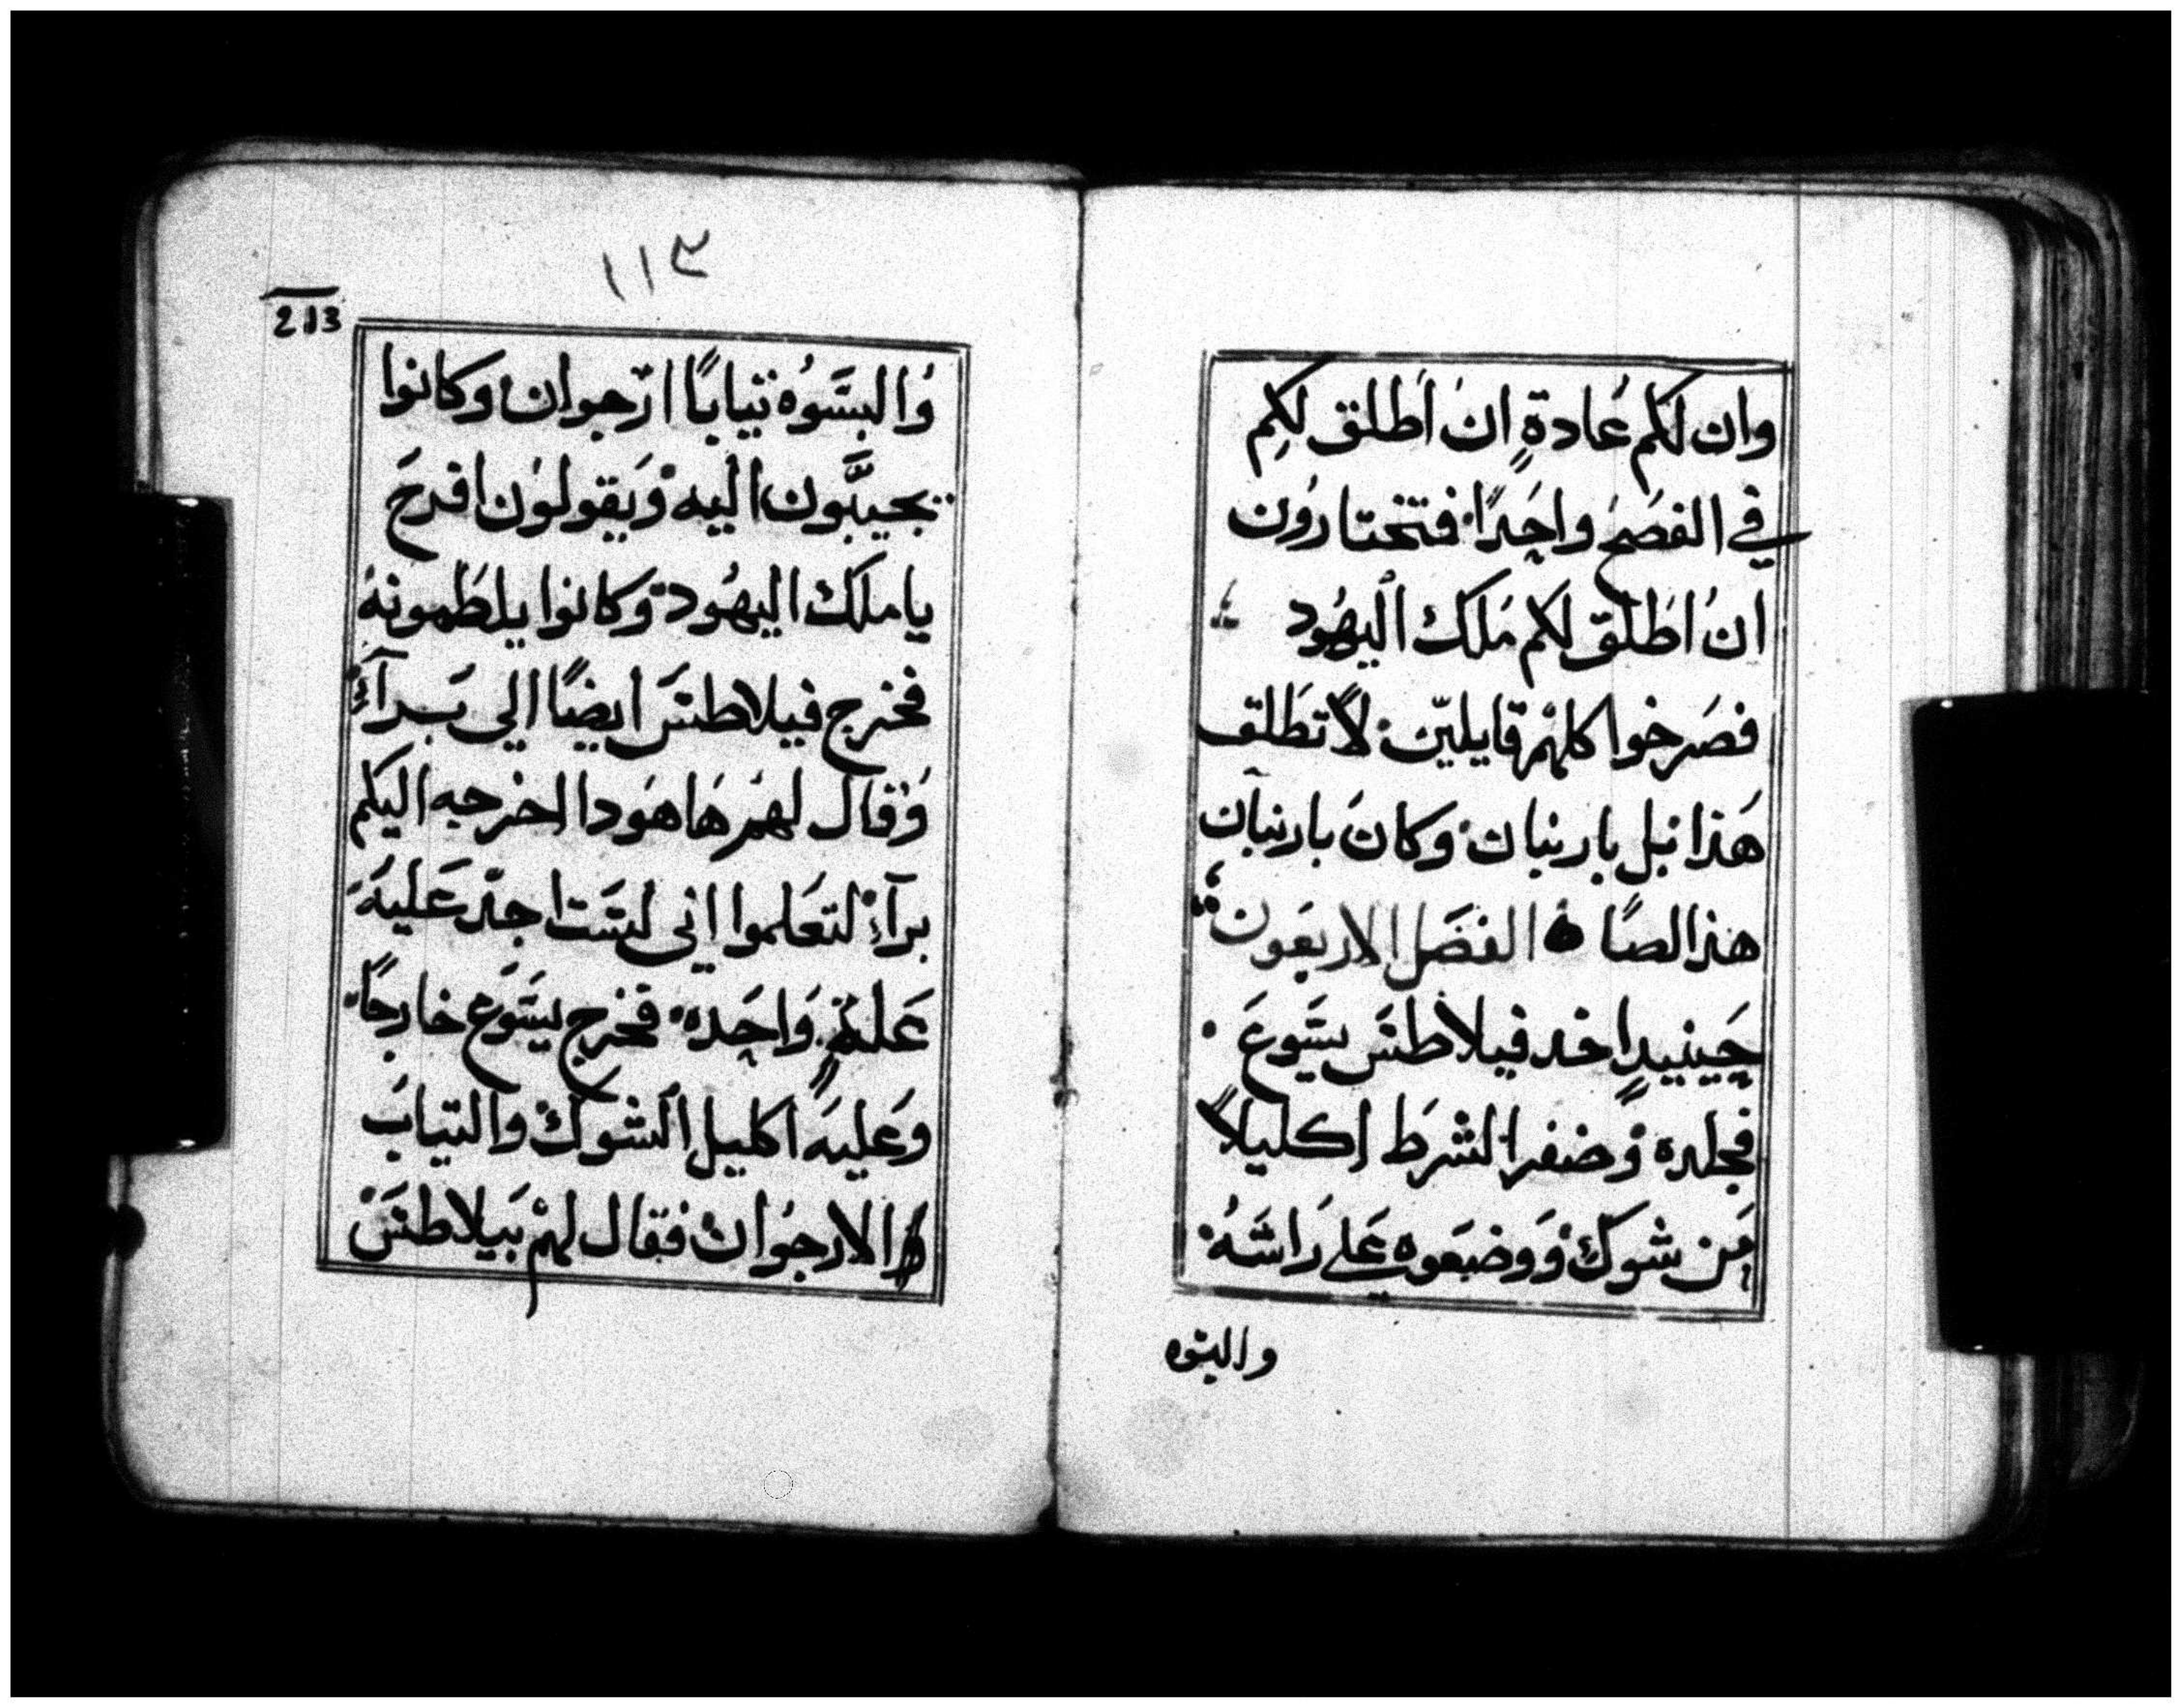 وان لكم عُادةٍ ان اَطلق لكِم
في الفصَح واحِدًا فتختارُون
انُ اطَلق لكم مَلك اليهُود
فصَرخوا كلهْم قايليّن لاً تطَلق
هَذا بل بارنبان وكانَ بارنبان
هذا لصًا الفصَل الاربعَون
حَينييدٍ اخد فيلاطسَ يسَوعَ
فجلده وَضفر الشرَط اكليلاً
مَن شوكٍ وَوضعَوه عَلي رَاسَهُ
والبسَوه
١١٣
213
وُالبسَوُه تيابًا ارَجوان وكانوا
يجيبَّون اليه وَيقولوُن افرحَ
ياملك اليهُود وكانوا يلطَمونهُ
فخرج فيلاطسَ ايضًا الي بَرآءٍ
وَقال لهمْ هَاهَودا اخرجه اليكم
برآءْ لتعَلموا اني لسَت اجدّ عَليهَ
عَلةٍ وَاحِده فخرج يسَوَع خارجًا
وعَليهَ اكليل الشوكْ والتيابَ
الارجوُان فقال لهمْ بَيلاطسَ